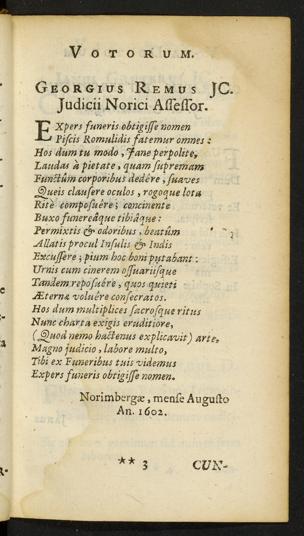 VOTORUM.
GEORGIUS REMUS JC.
Judicii Norici Assessor.
EXpers funeris obtigisse nomen
Piscis Romulidis fatemur omnes:
Hos dum tu modo, Jane perpolite,
Laudas à pietate, quam supremam
Functûm corporibus dedêre, suaves
Queis clausere oculos, rogoque lota
Ritè composuêre; concinente
Buxo funereâque tibiâque:
Permixtis & odoribus, beatûm
Allatis procul Insulis & Indis
Excussere; pium hoc boni putabant:
Urnis cum cinerem ossuariisque
Tandem reposuêre, quos quieti
Æternæ voluêre consecratos.
Hos dum multiplices sacrosque ritus
Nunc charta exigis eruditiore,
(Quod nemo hactenus explicavit) arte,
Magno judicio, labore multo,
Tibi ex Funeribus tuis videmus
Expers funeris obtigisse nomen.
Norimbergæ, mense Augusto
An. 1602.
** 3 CUN-